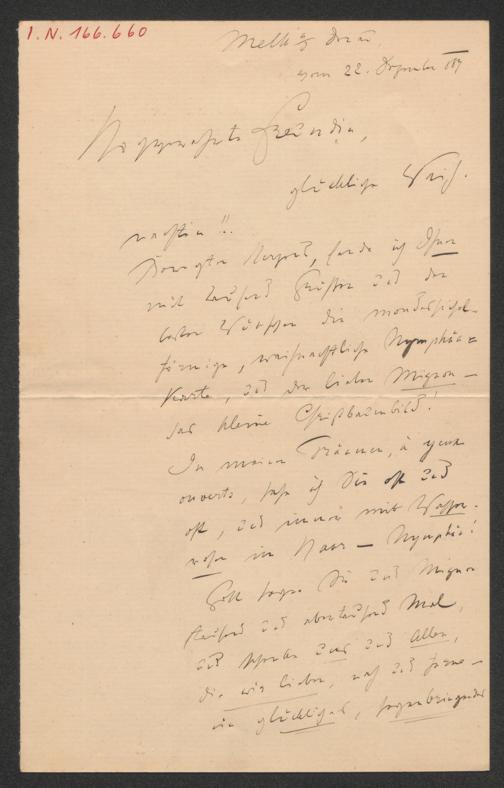 I.N. 166.660
Melk a/d Donau,
vom 22. Dezember 1887
Hochverehrte Freundin,
glückliche Weih-
nachten!!
Bewegten Herzens, sende ich Ihnen
mit tausend Grüßen und den
besten Wünschen die mondsichel-
förmige, weihnachtliche Nymphäa-
Karte, und der lieben Mignon –
das kleine Christbaumbild!
In meinen Träumen, à yeux
ouverts, sehe ich Sie oft und
oft, und immer mit Wasser-
rosen im Haar – Nymphäa!
Gott segne Sie und Mignon
tausend und abertausend Mal,
und schenke uns und Allen,
die wir lieben, nah und ferne –
ein glückliches, segenbringendes